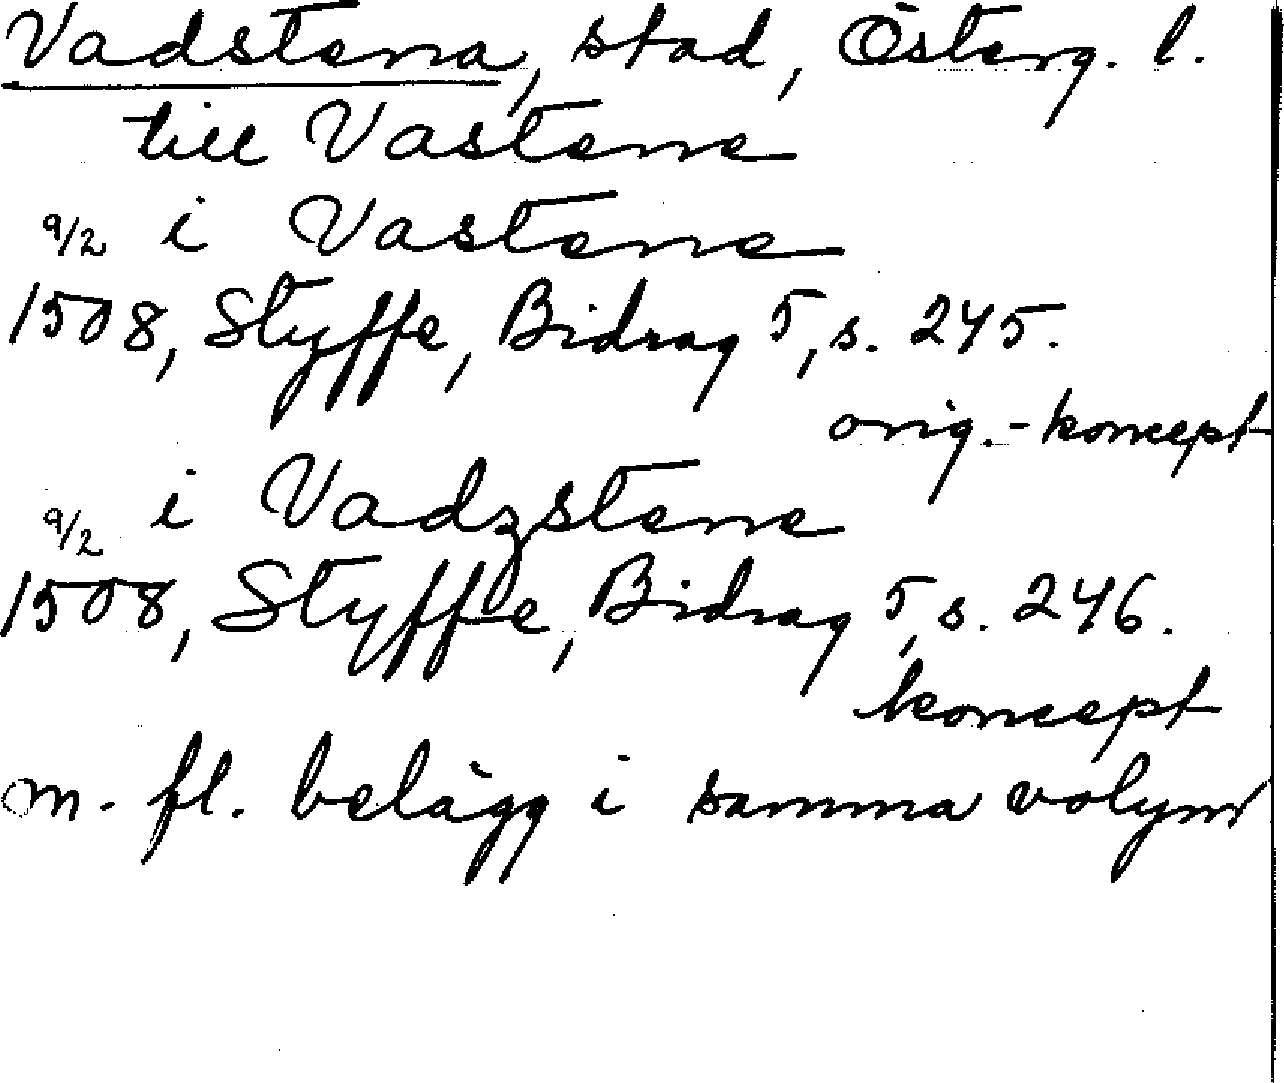 Vadstena, stad, Österg. l.
till Vastene
9/2 i Vastene
1508, Styffe, Bidrag 5, s. 245.
orig.-koncept
9/2 i Vadzstene
1508, Styffe, Bidrag 5, s. 246.
koncept
m. fl. belägg i samma volym